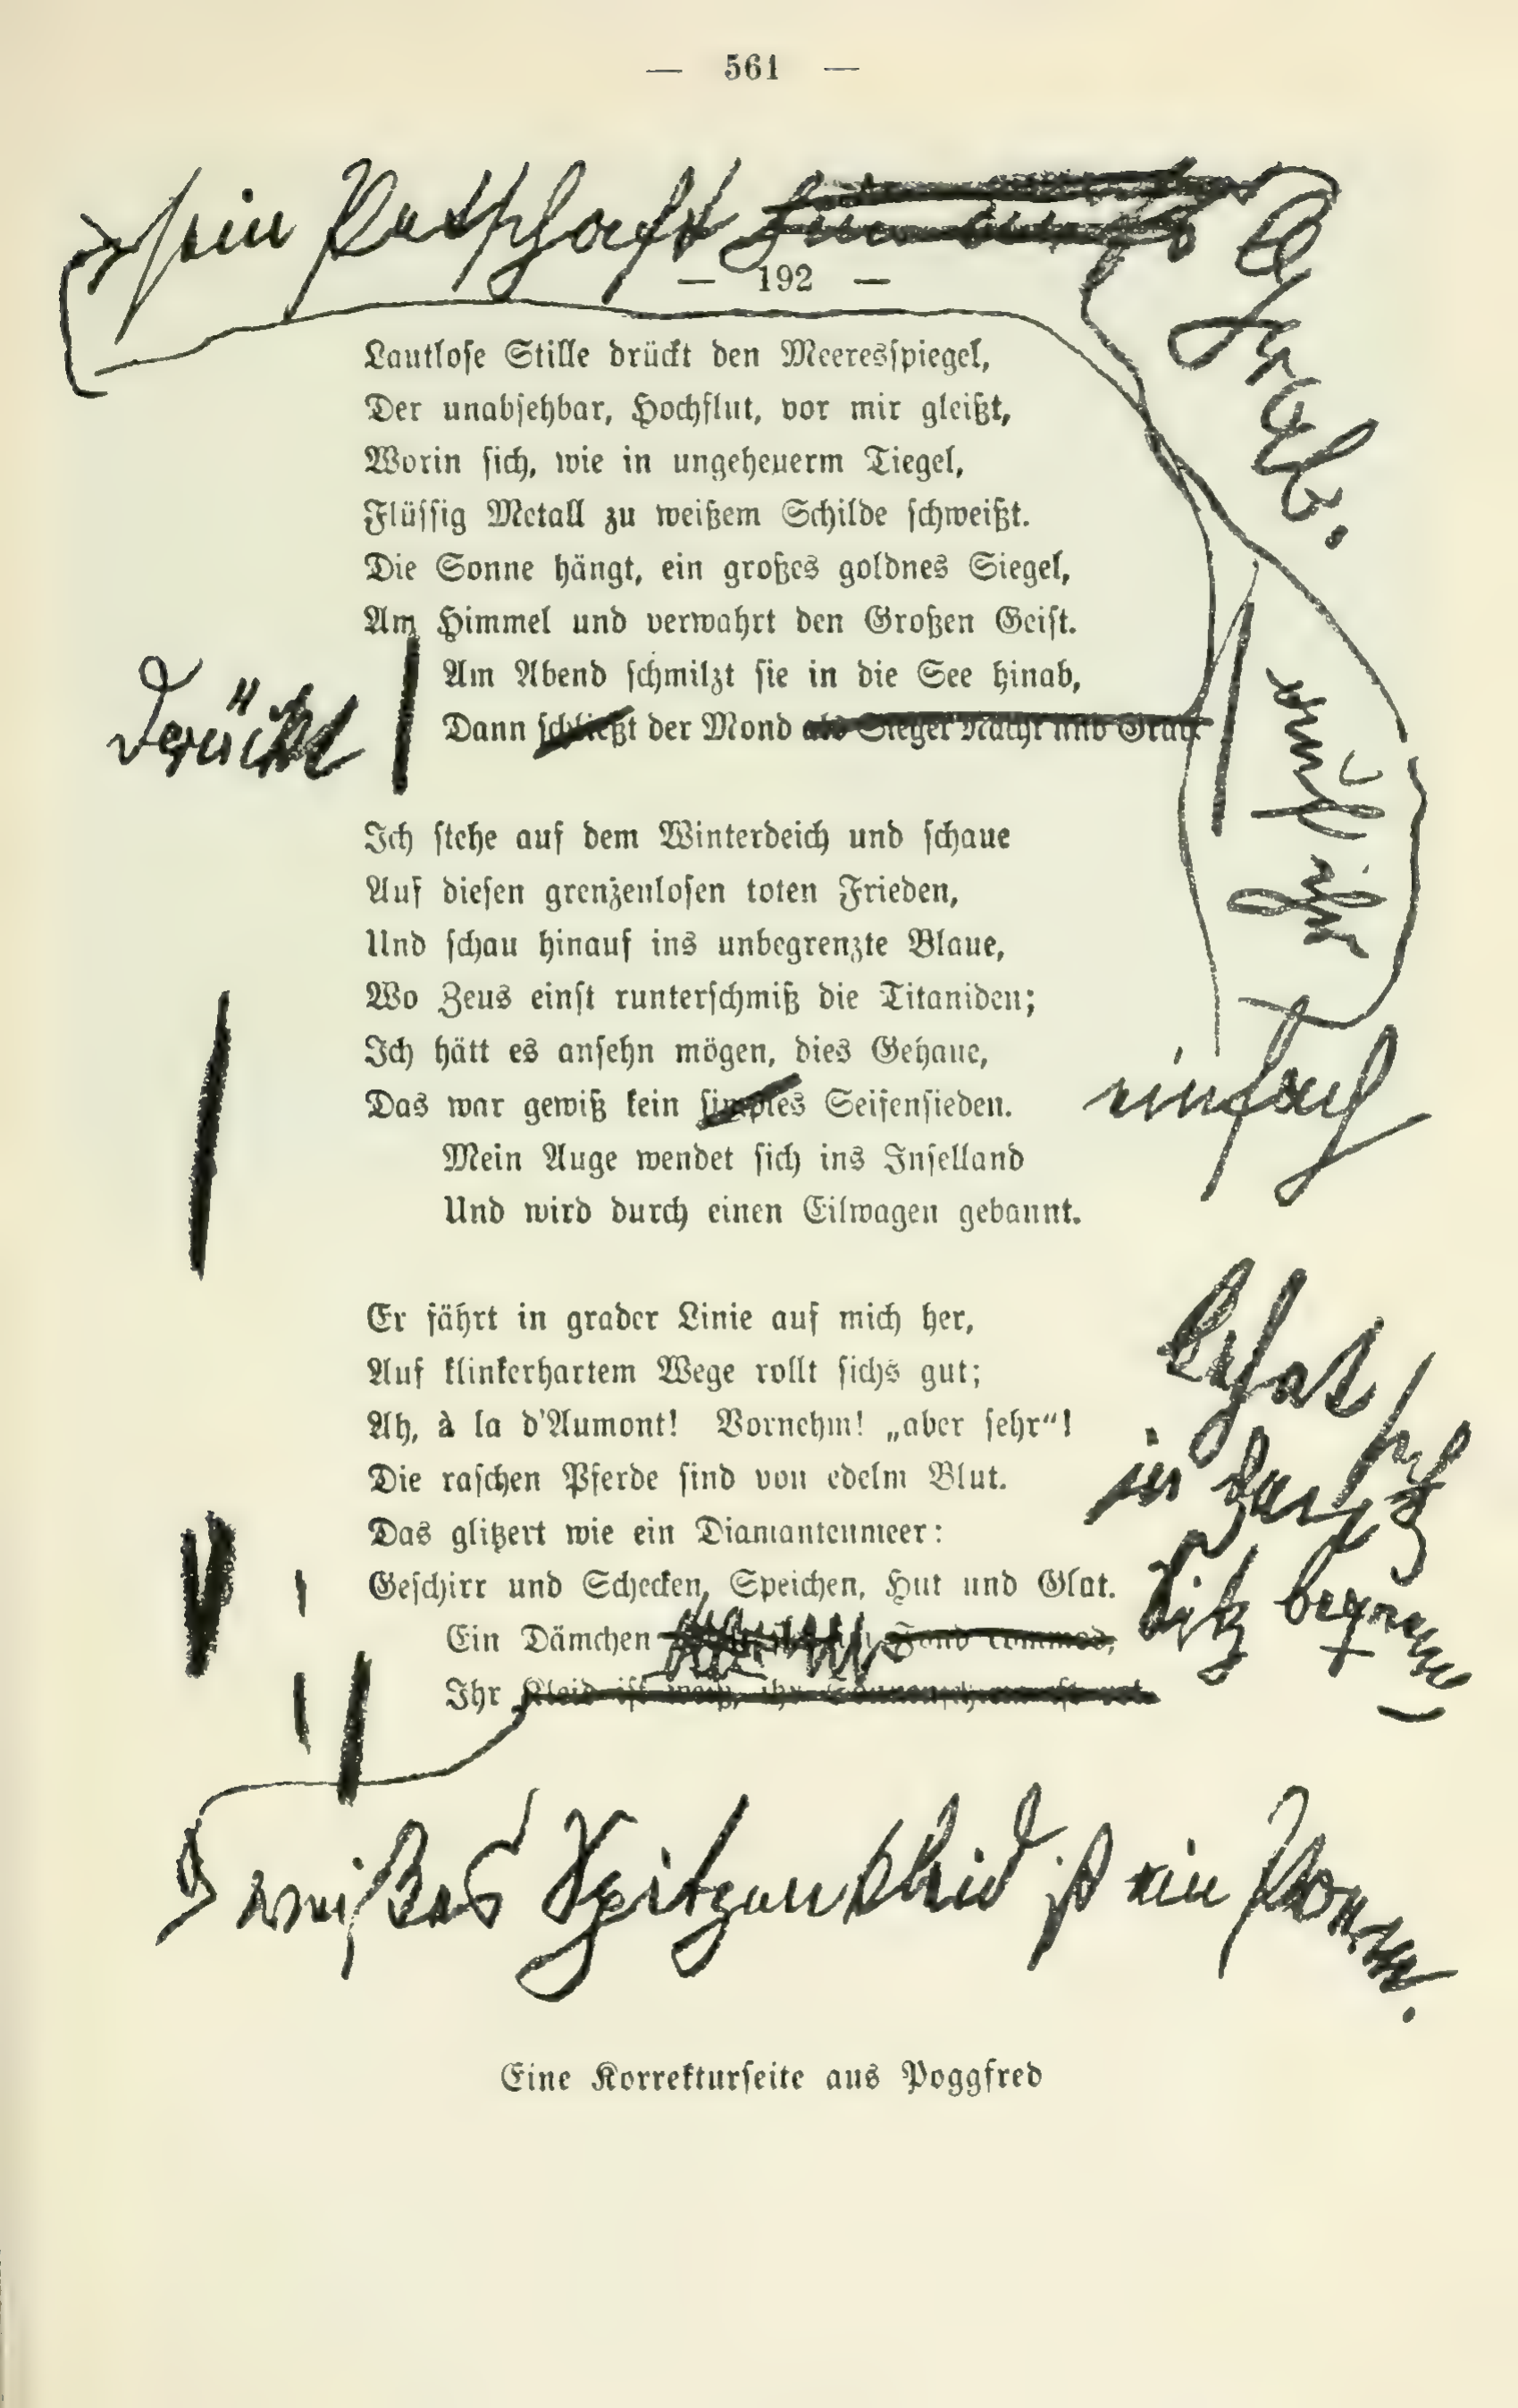 — 561 —
sein Petschaft
— 192 —
Lautlose Stille drückt den Meeresspiegel,
Der unabsehbar, Hochflut, vor mir gleißt,
Worin sich, wie in ungeheuerm Tiegel,
Flüssig Metall zu weißem Schilde schweißt.
Die Sonne hängt, ein großes goldnes Siegel,
Am Himmel und verwahrt den Großen Geist.
Am Abend schmilzt sie in die See hinab,
Dann schließt der Mond als Siegel Nacht und Grab.
drückt
Grab.
auf ihr
Ich stehe auf dem Winterdeich und schaue
Auf diesen grenzenlosen toten Frieden,
Und schau hinauf ins unbegrenzte Blaue,
Wo Zeus einst runterschmiß die Titaniden;
Ich hätt es ansehn mögen, dies Gehaue,
Das war gewiß kein simples Seifensieden.
einfach
Mein Auge wendet sich ins Inselland
Und wird durch einen Eilwagen gebannt.
Er fährt in grader Linie auf mich her,
Auf klinkerhartem Wege rollt sichs gut;
Ah, à la d'Aumont! Vornehm! „aber sehr“!
Die raschen Pferde sind von edelm Blut.
Das glitzert wie ein Diamantenmeer:
Geschirr und Schecken, Speichen, Hut und Glat.
Ein Dämchen Fond commod,
Ihr Kleid ist weiß, ihr Sonnenschirm ist rot.
hat sich
Sitz bequem
weißes Spitzenkleid ist ein
Eine Korrekturseite aus Poggfred